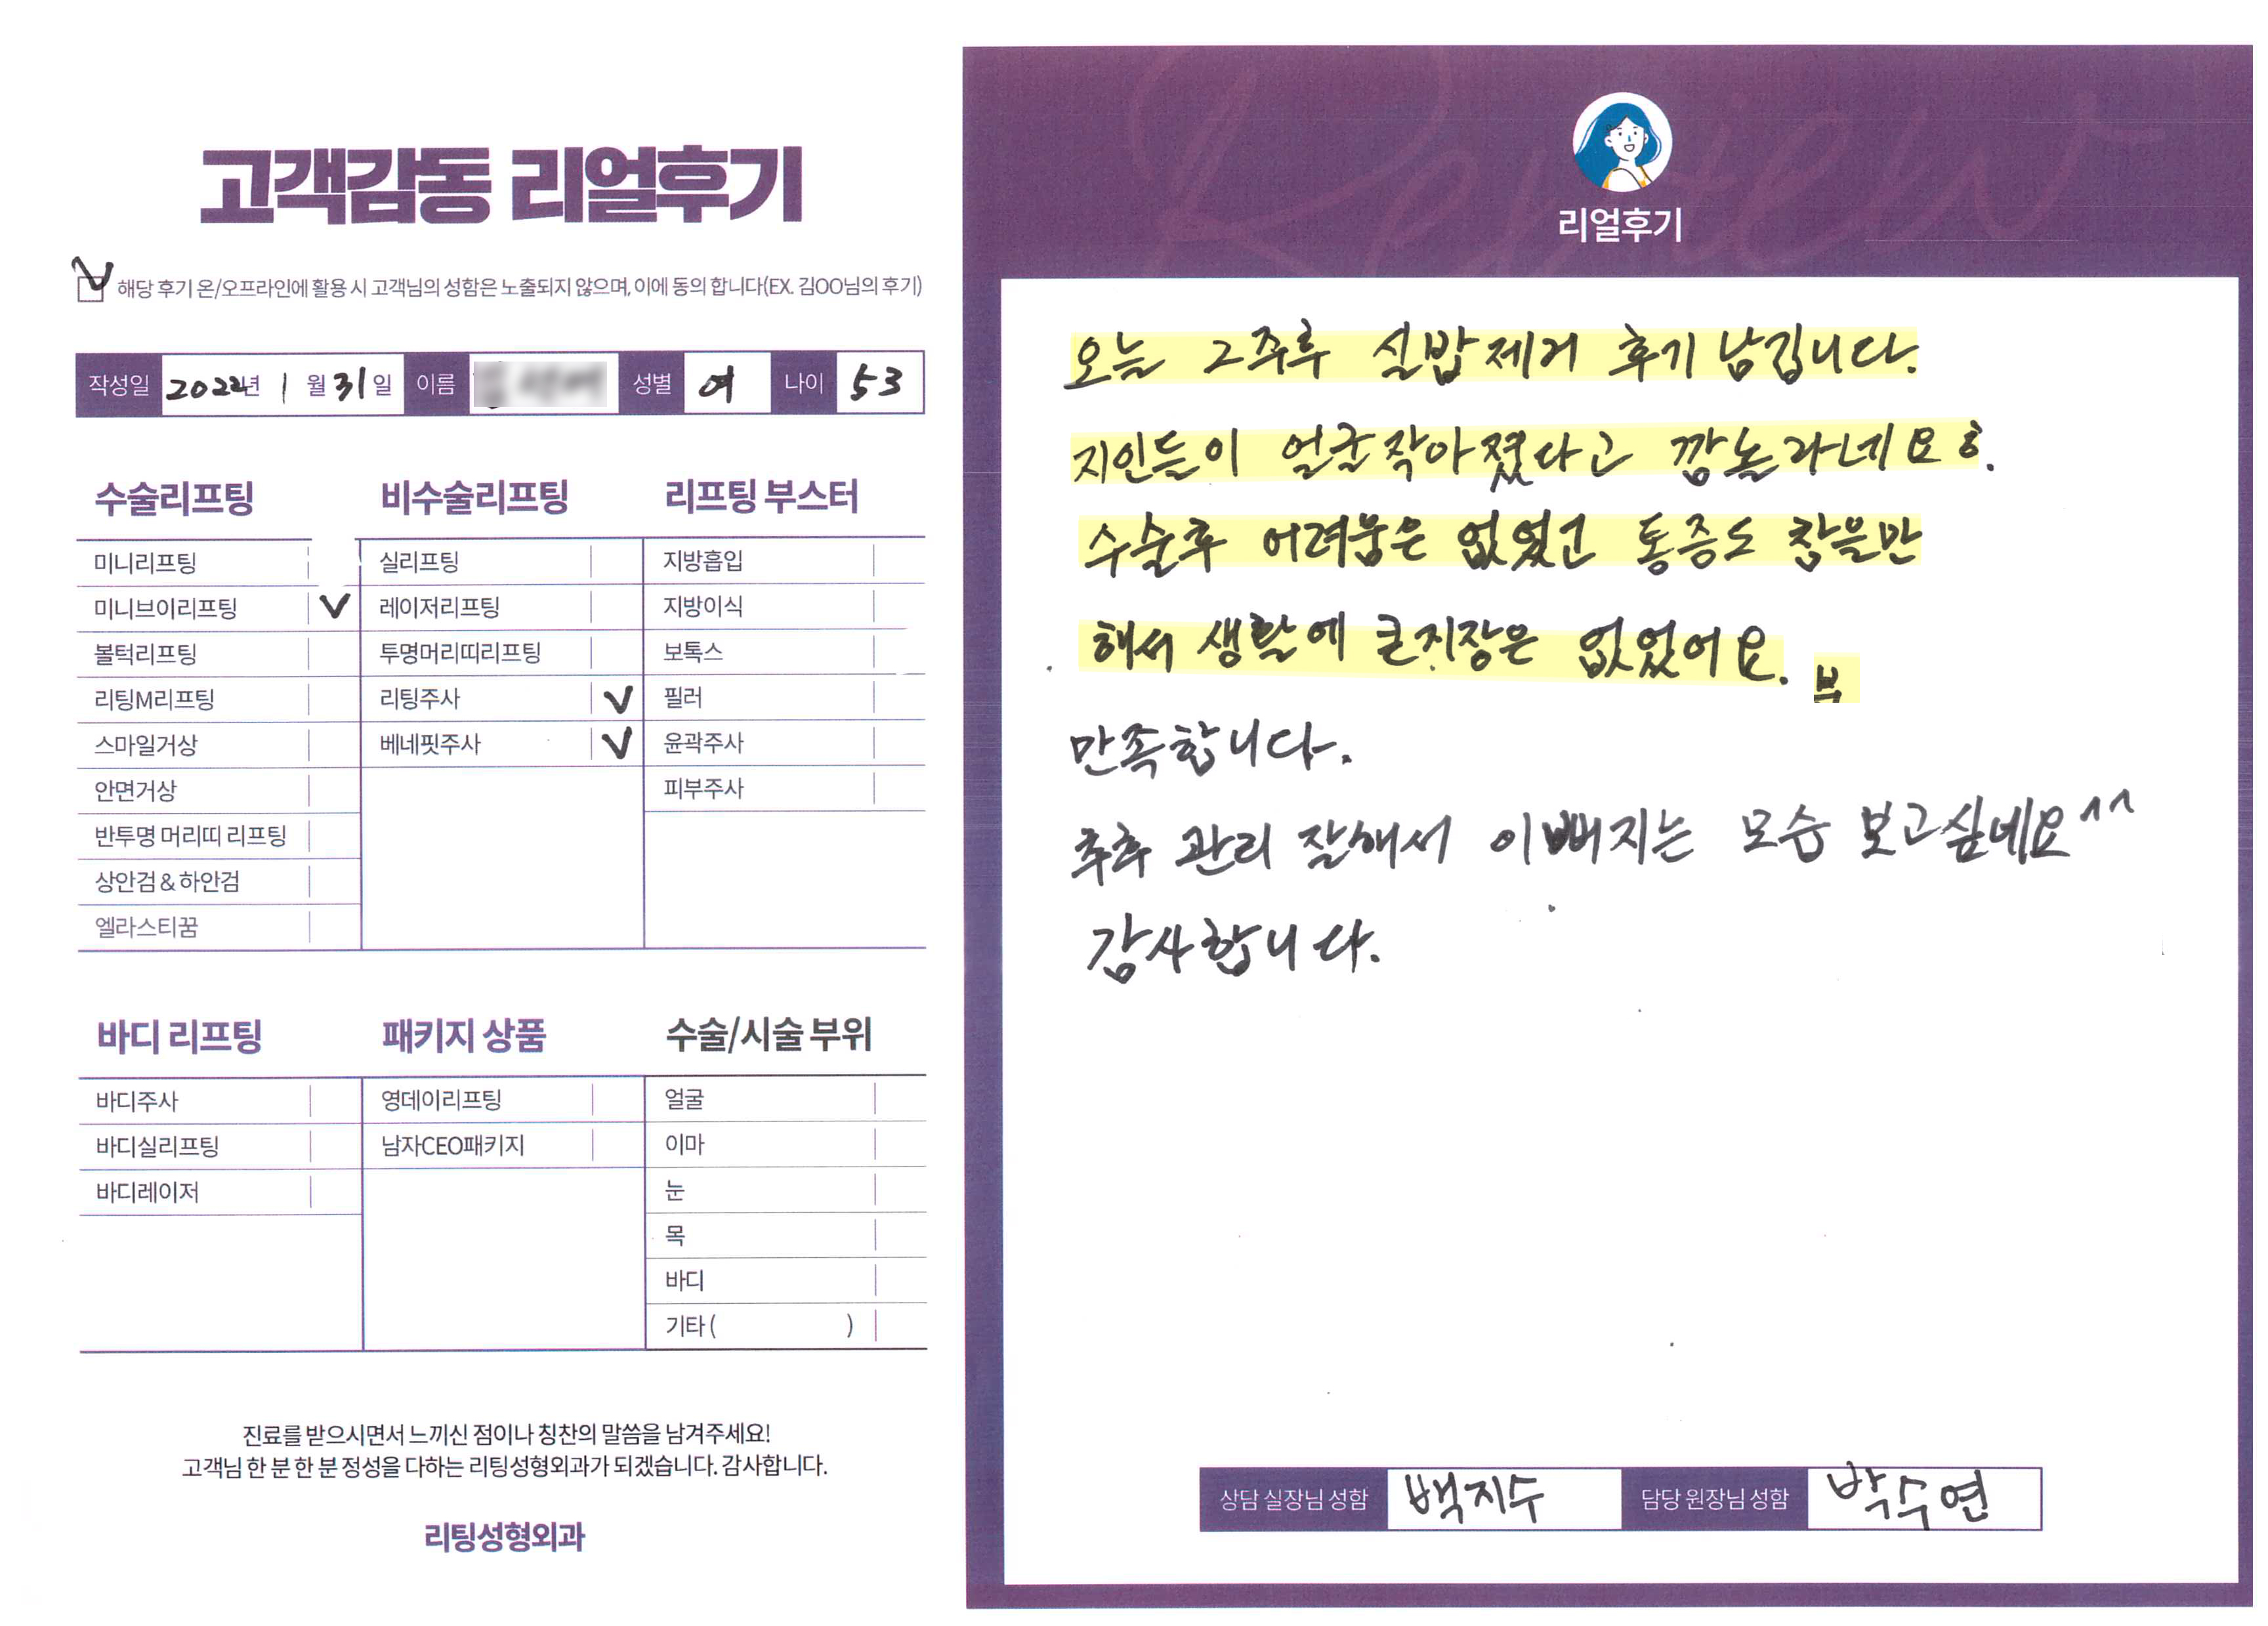 고객감동 리얼후기
해당 후기 온/오프라인에 활용 시 고객님의 성함은 노출되지 않으며, 이에 동의 합니다(EX. 김OO님의 후기)
작성일 2022년 1월 31일 이름 성별 여 나이 53
수술리프팅
미니리프팅
미니브이리프팅 V
볼턱리프팅
리팅M리프팅
스마일거상
안면거상
반투명 머리띠 리프팅
상안검 & 하안검
엘라스티꿈
비수술리프팅
실리프팅
레이저리프팅
투명머리띠리프팅
리팅주사 V
베네핏주사 V
리프팅 부스터
지방흡입
지방이식
보톡스
필러
윤곽주사
피부주사
바디 리프팅
바디주사
바디실리프팅
바디레이저
패키지 상품
영데이리프팅
남자CEO패키지
수술/시술 부위
얼굴
이마
눈
목
바디
기타 ( )
진료를 받으시면서 느끼신 점이나 칭찬의 말씀을 남겨주세요!
고객님 한 분 한 분 정성을 다하는 리팅성형외과가 되겠습니다. 감사합니다.
리팅성형외과
Review
리얼후기
오늘 2주후 실밥제거 후기 남깁니다.
지인들이 얼굴작아졌다고 깜놀라네요ㅎ.
수술후 어려움은 없었고 통증도 참을만
해서 생활에 큰지장은 없었어요. 부
만족합니다.
추후 관리 잘해서 이뻐지는 모습 보고싶네요^^
감사합니다.
상담 실장님 성함 백지수 담당 원장님 성함 박수연